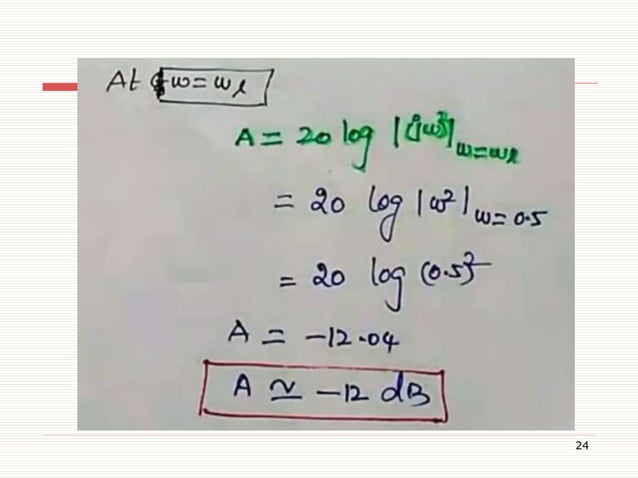 At ω = ωl
A = 20 log |(jω)²| ω=ωl
= 20 log |ω²| ω=0.5
= 20 log (0.5)²
A = -12.04
A ≃ -12 dB
24